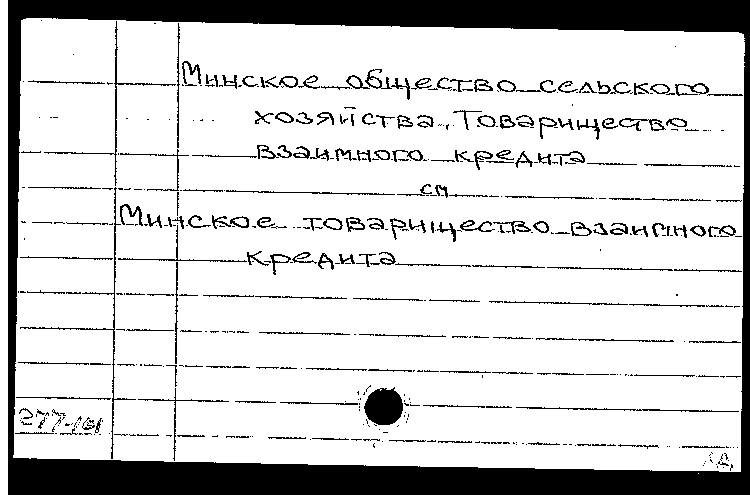 Минское общество сельского
хозяйства. Товарищество
взаимного кредита
см.
Минское товарищество взаимного
кредита